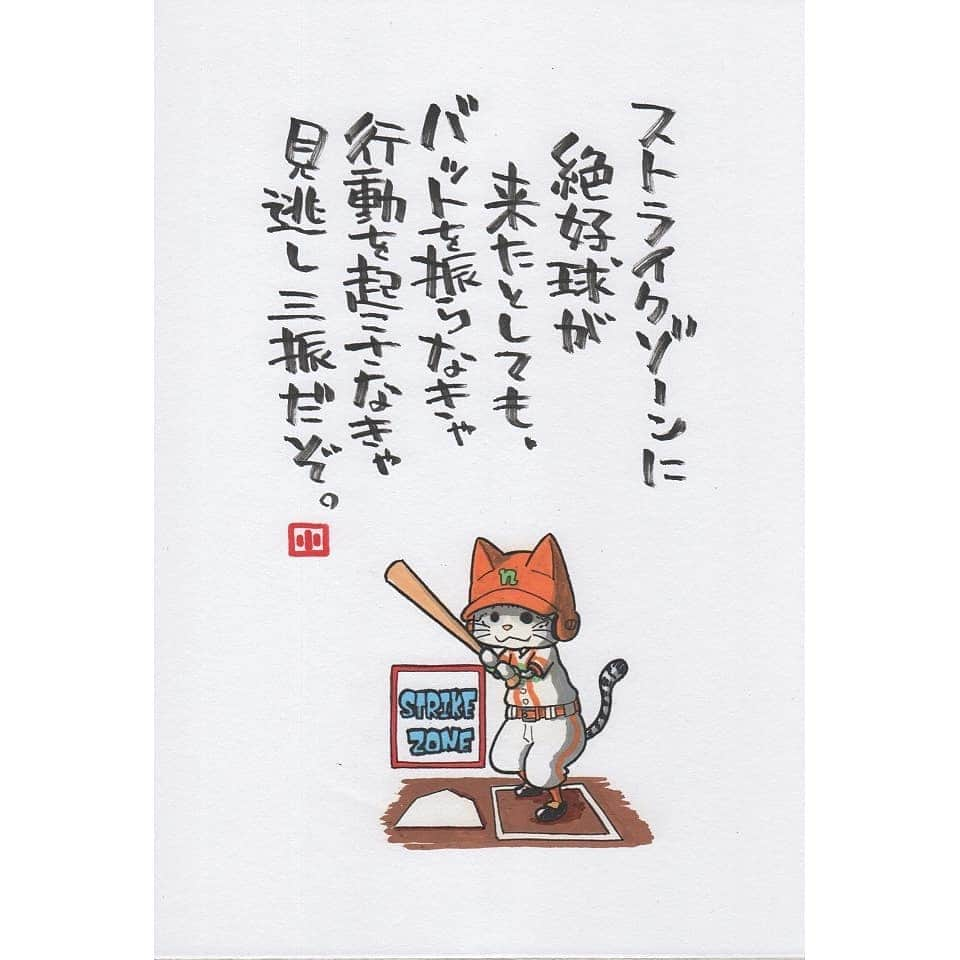 ストライクゾーンに
絶好球が
来たとしても、
バットを振らなきゃ
行動を起こさなきゃ
見逃し三振だぞ。
小
n
STRIKE
ZONE